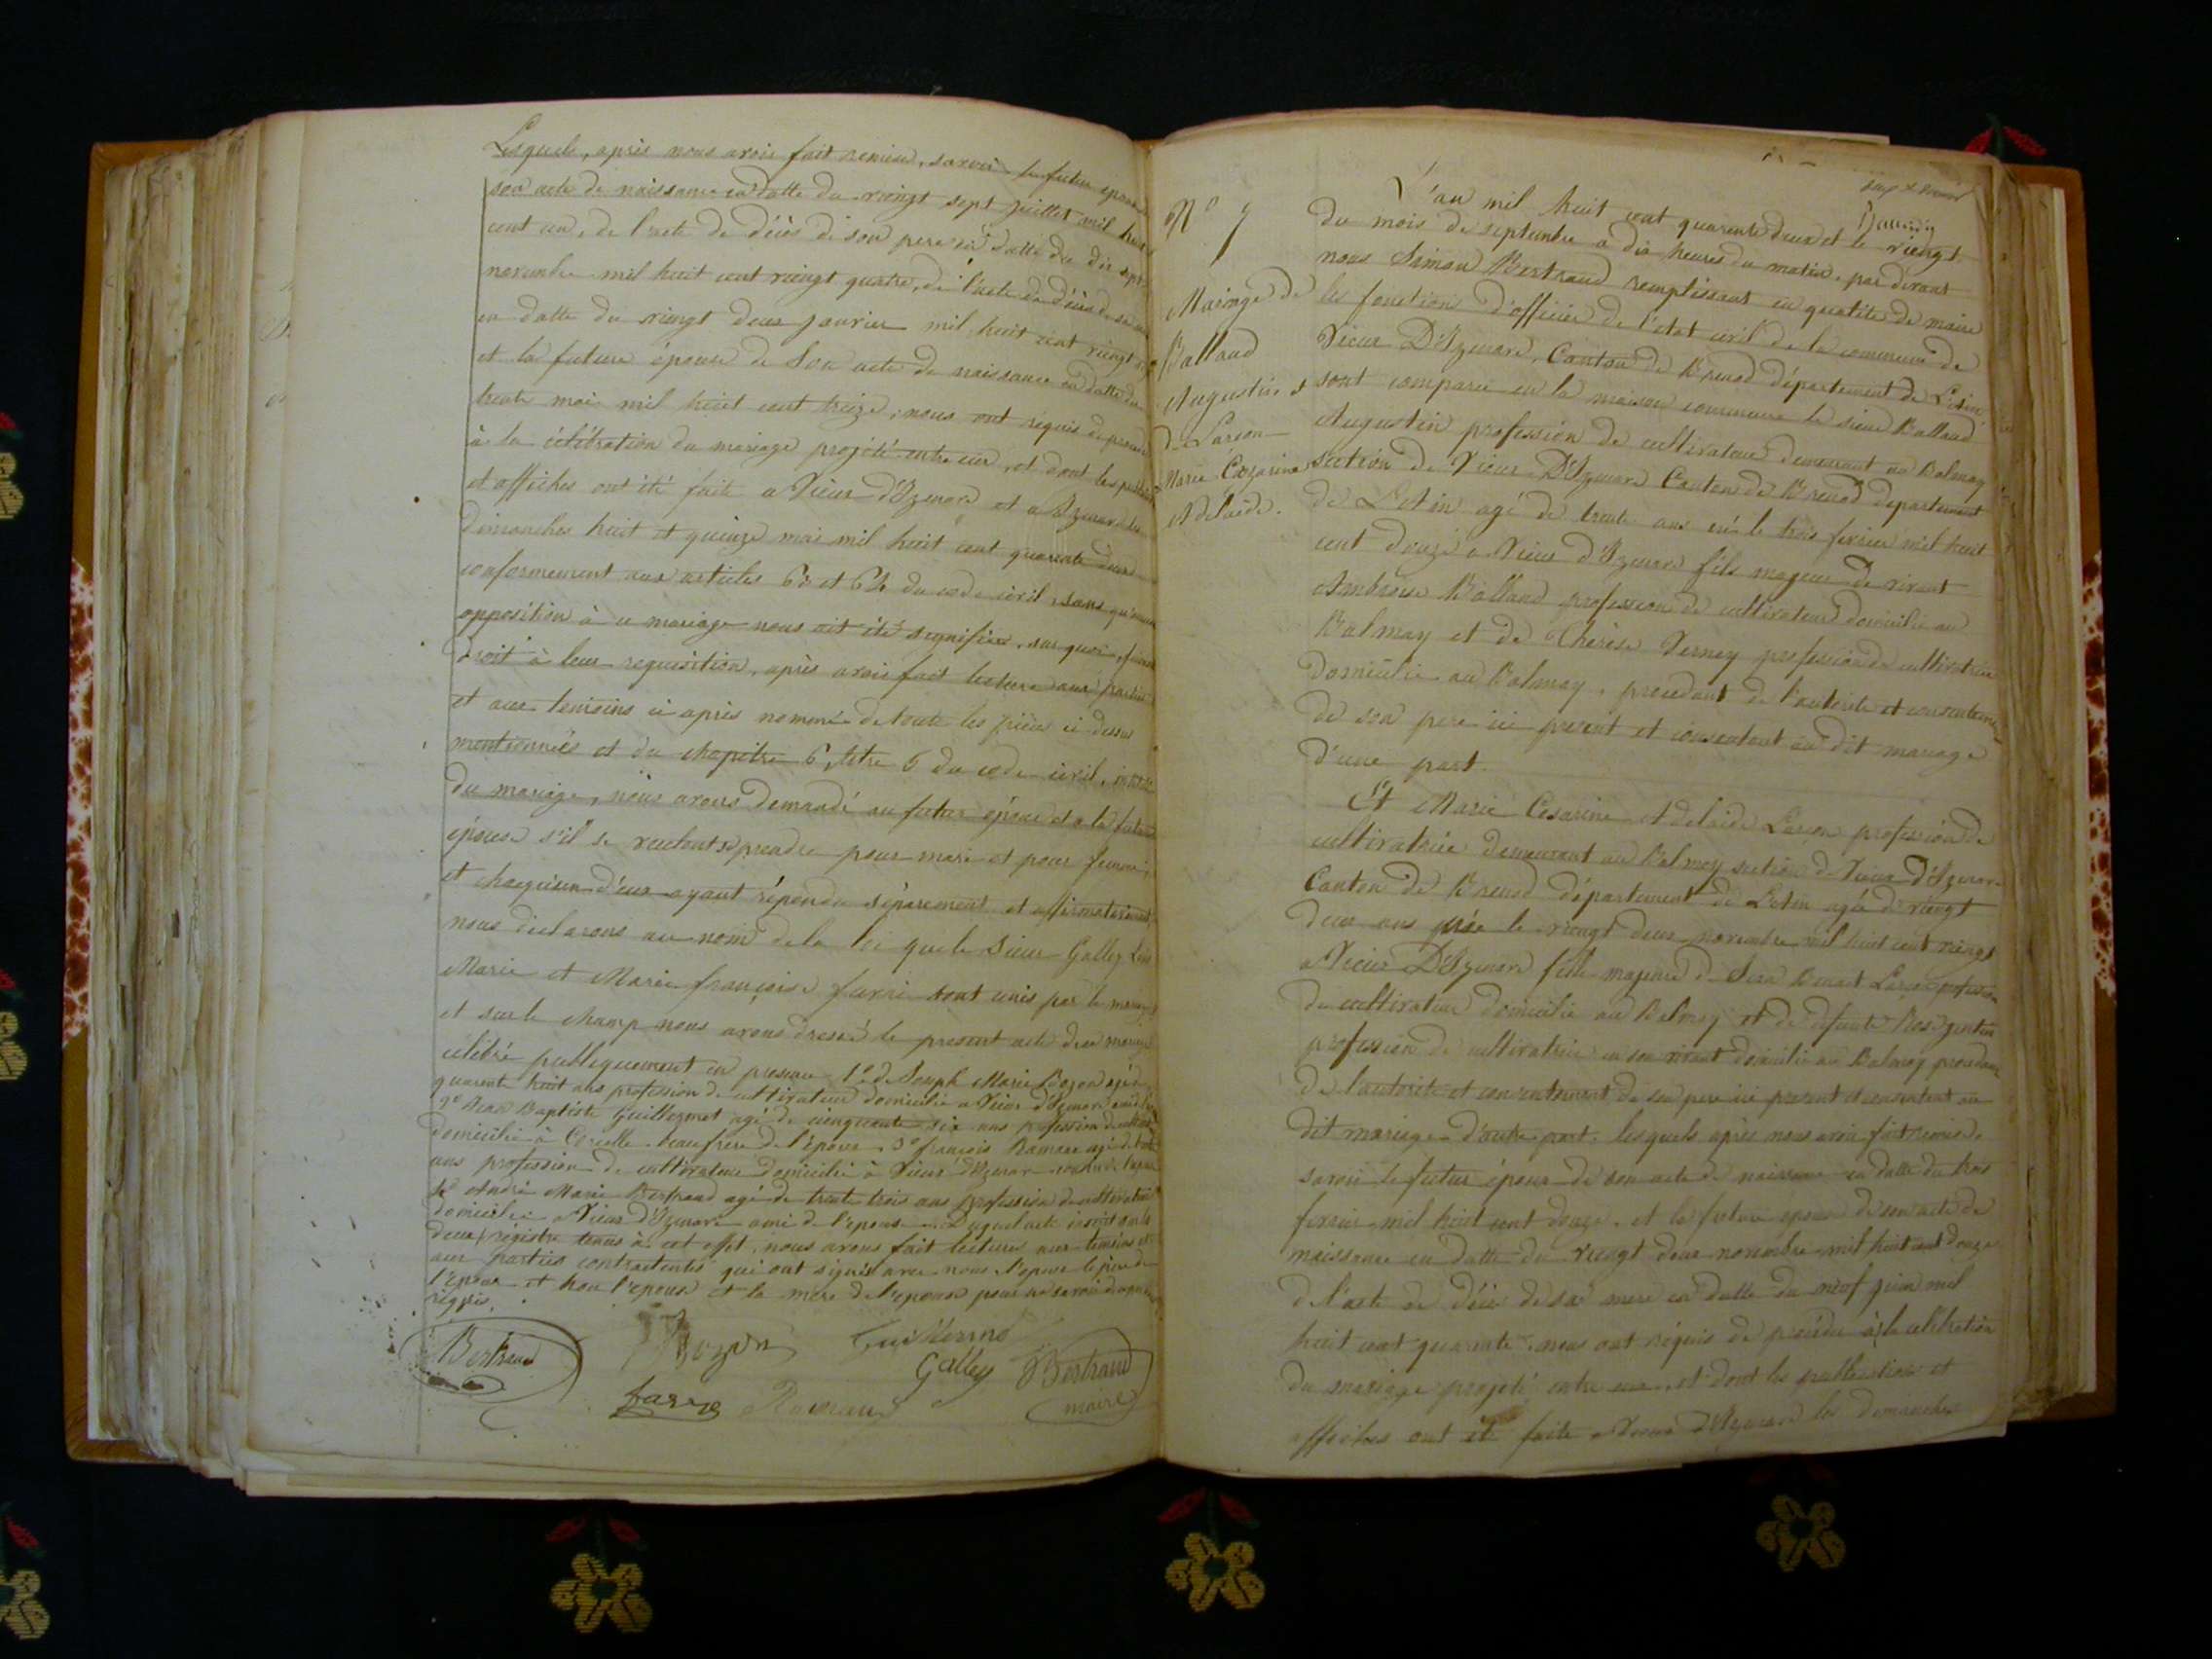 Lesquels, après nous avoir fait remise, savoir le futur époux de
son acte de naissance en datte du vingt sept juillet mil huit
cent un, de l'acte de décès de son pere en datte du dix sept
novembre mil huit cent vingt quatre, de l'acte de décès de sa
en datte du vingt deux janvier mil huit cent vingt
et la future épouse de son acte de naissance en datte du
trente mai mil huit cent treize, nous ont requis de proceder
à la célébration du mariage projeté entre eux, et dont les
et affiches ont été faite a Vieux d'Izenave et a Izenave les
dimanches huit et quinze mai mil huit cent quarante deux
conformement aux articles 63 et 64 du code civil, sans qu'aucune
opposition à ce mariage nous ait été signifiée, sur quoi, faisant
droit à leur requisition, après avoir fait lecture aux parties
et aux temoins ci après nommé de toute les pièces ci dessus
mentionnés et du chapitre 6, titre 6 du code civil, intitulé
du mariage, nous avons demandé au futur époux et a la future
épouse s'il se veulent prendre pour mari et pour femme,
et chacquun d'eux ayant répondu séparement et affirmativement
nous declarons au nom de la loi que le sieur Galley
Marie et Marie françoise farre sont unis par le mariage
et sur le champ nous avons dressé le present acte de mariage
célébré publiquement en presence 1° de Joseph Marie Bozon agé de
quarante huit ans profession de cultivateur domicilié a Vieux d'Izenave
2° Jean Baptiste Guillermet agé de cinquante six ans profession de
domicilié à Corcelle beaufrere de l'époux 3° françois Rameau agé de
ans profession de cultivateur domicilié à Vieux d'Izenave
4° André Marie Bertrand agé de trente trois ans profession de cultivateur
domicilié a Vieux d'Izenave ami de l'époux. Duquel acte inscrit sur les
deux régistre tenus à cet effet, nous avons fait lecture aux temoins et
aux parties contractantes qui ont signés avec nous l'époux le pere de
l'épouse et non l'épouse et la mere de l'épouse pour ne savoir
réquis.
Bertrand
Bozon
Guillerme
Galley
Bertrand
maire
farre
Rameau
N° 7
Mariage de
Balland
Augustin et
de Larcon
Marie Cezarine
Adelaïde.
L'an mil huit cent quarante deux et le vingt
du mois de septembre a dix heures du matin, par devant
nous Simon Bertrand remplissant en qualité de maire
les fonction d'officier de l'etat civil de la commune de
Vieux D'Izenave, Canton de Brenod département de L'ain
sont comparu en la maison commune le sieur Balland
Augustin profession de cultivateur demeurant au Balmay
section de Vieux D'Izenave Canton de Brenod departement
de L'ain agé de trente ans né le trois fevrier mil huit
cent douze a Vieux d'Izenave fils majeur de vivant
Ambroise Balland profession de cultivateur domicilié au
Balmay et de Thérèse Verney profession de cultivatrice
domicilié au Balmay, procedant de l'autorité et consenteme-
de son pere ici present et consentant au dit mariage
d'une part.
Et Marie Cesarine Adelaïde Larcon profession de
cultivatrice demeurant au Balmay section de Vieux D'Izenave
Canton de Brenod département de L'ain agée de vingt
deux ans née le vingt deux novembre mil huit cent vingt
a Vieux D'Izenave fille majeure de Jean Benoit Larcon profession
de cultivateur domicilié au Balmay et de defunte
profession de cultivatrice en son vivant domicilié au Balmay procedant
de l'autorité et consentement de son pere ici present et consentant au
dit mariage d'autre part. lesquels après nous avoir fait remise
savoir le futur époux de son acte de naissance en datte du trois
fevrier mil huit cent douze, et la future epouse de son acte de
naissance en datte du vingt deux novembre mil huit cent douze
de l'acte de décès de sa mere en datte du neuf juin mil
huit cent quarante, nous ont réquis de procéder à la célébration
du mariage projeté entre eux, et dont les publications et
affiches ont été faite a Vieux d'Izenave les dimanches